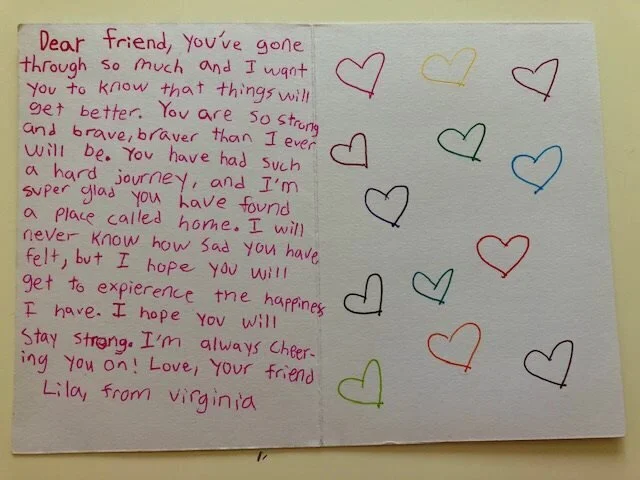 Dear friend, you've gone
through so much and I want
you to know that things will
get better. You are so strong
and brave, braver than I ever
will be. You have had such
a hard journey, and I'm
super glad you have found
a place called home. I will
never know how sad you have
felt, but I hope you will
get to expierence the happiness
I have. I hope you will
Stay strong. I'm always cheer-
ing you on! Love, your friend
Lila, from virginia